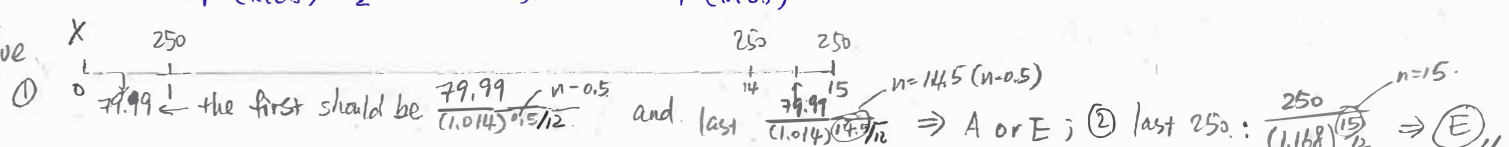 X 250 250 250
0 1 14 15
① 79.99 ← the first should be 79.99/(1.014)^0.5/12 n-0.5 and last 79.99/(1.014)^14.5/12 n=14.5 (n-0.5) ⇒ A or E ; ② last 250 : 250/(1.168)^15/12 n=15. ⇒ E